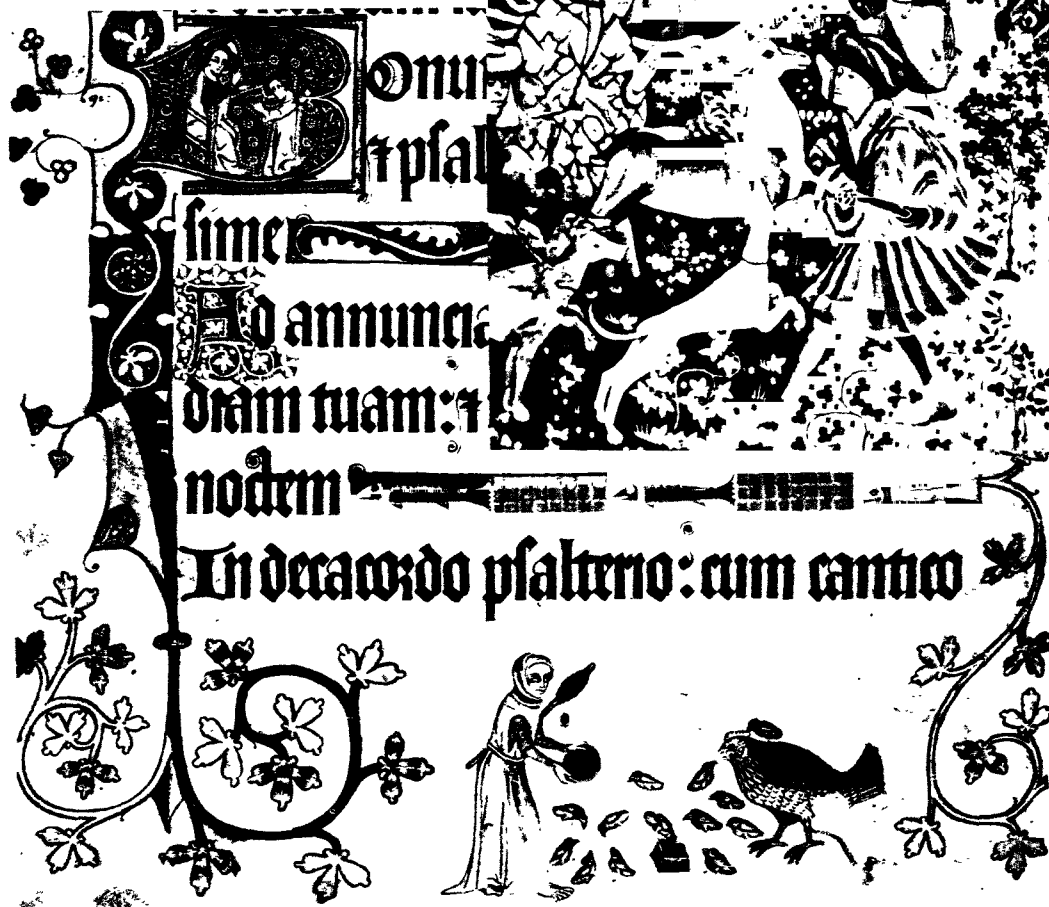 Bonu
⁊ psal
sime
Ad annuncia
diam tuam: ⁊
noctem
In decacordo psalterio: cum cantico